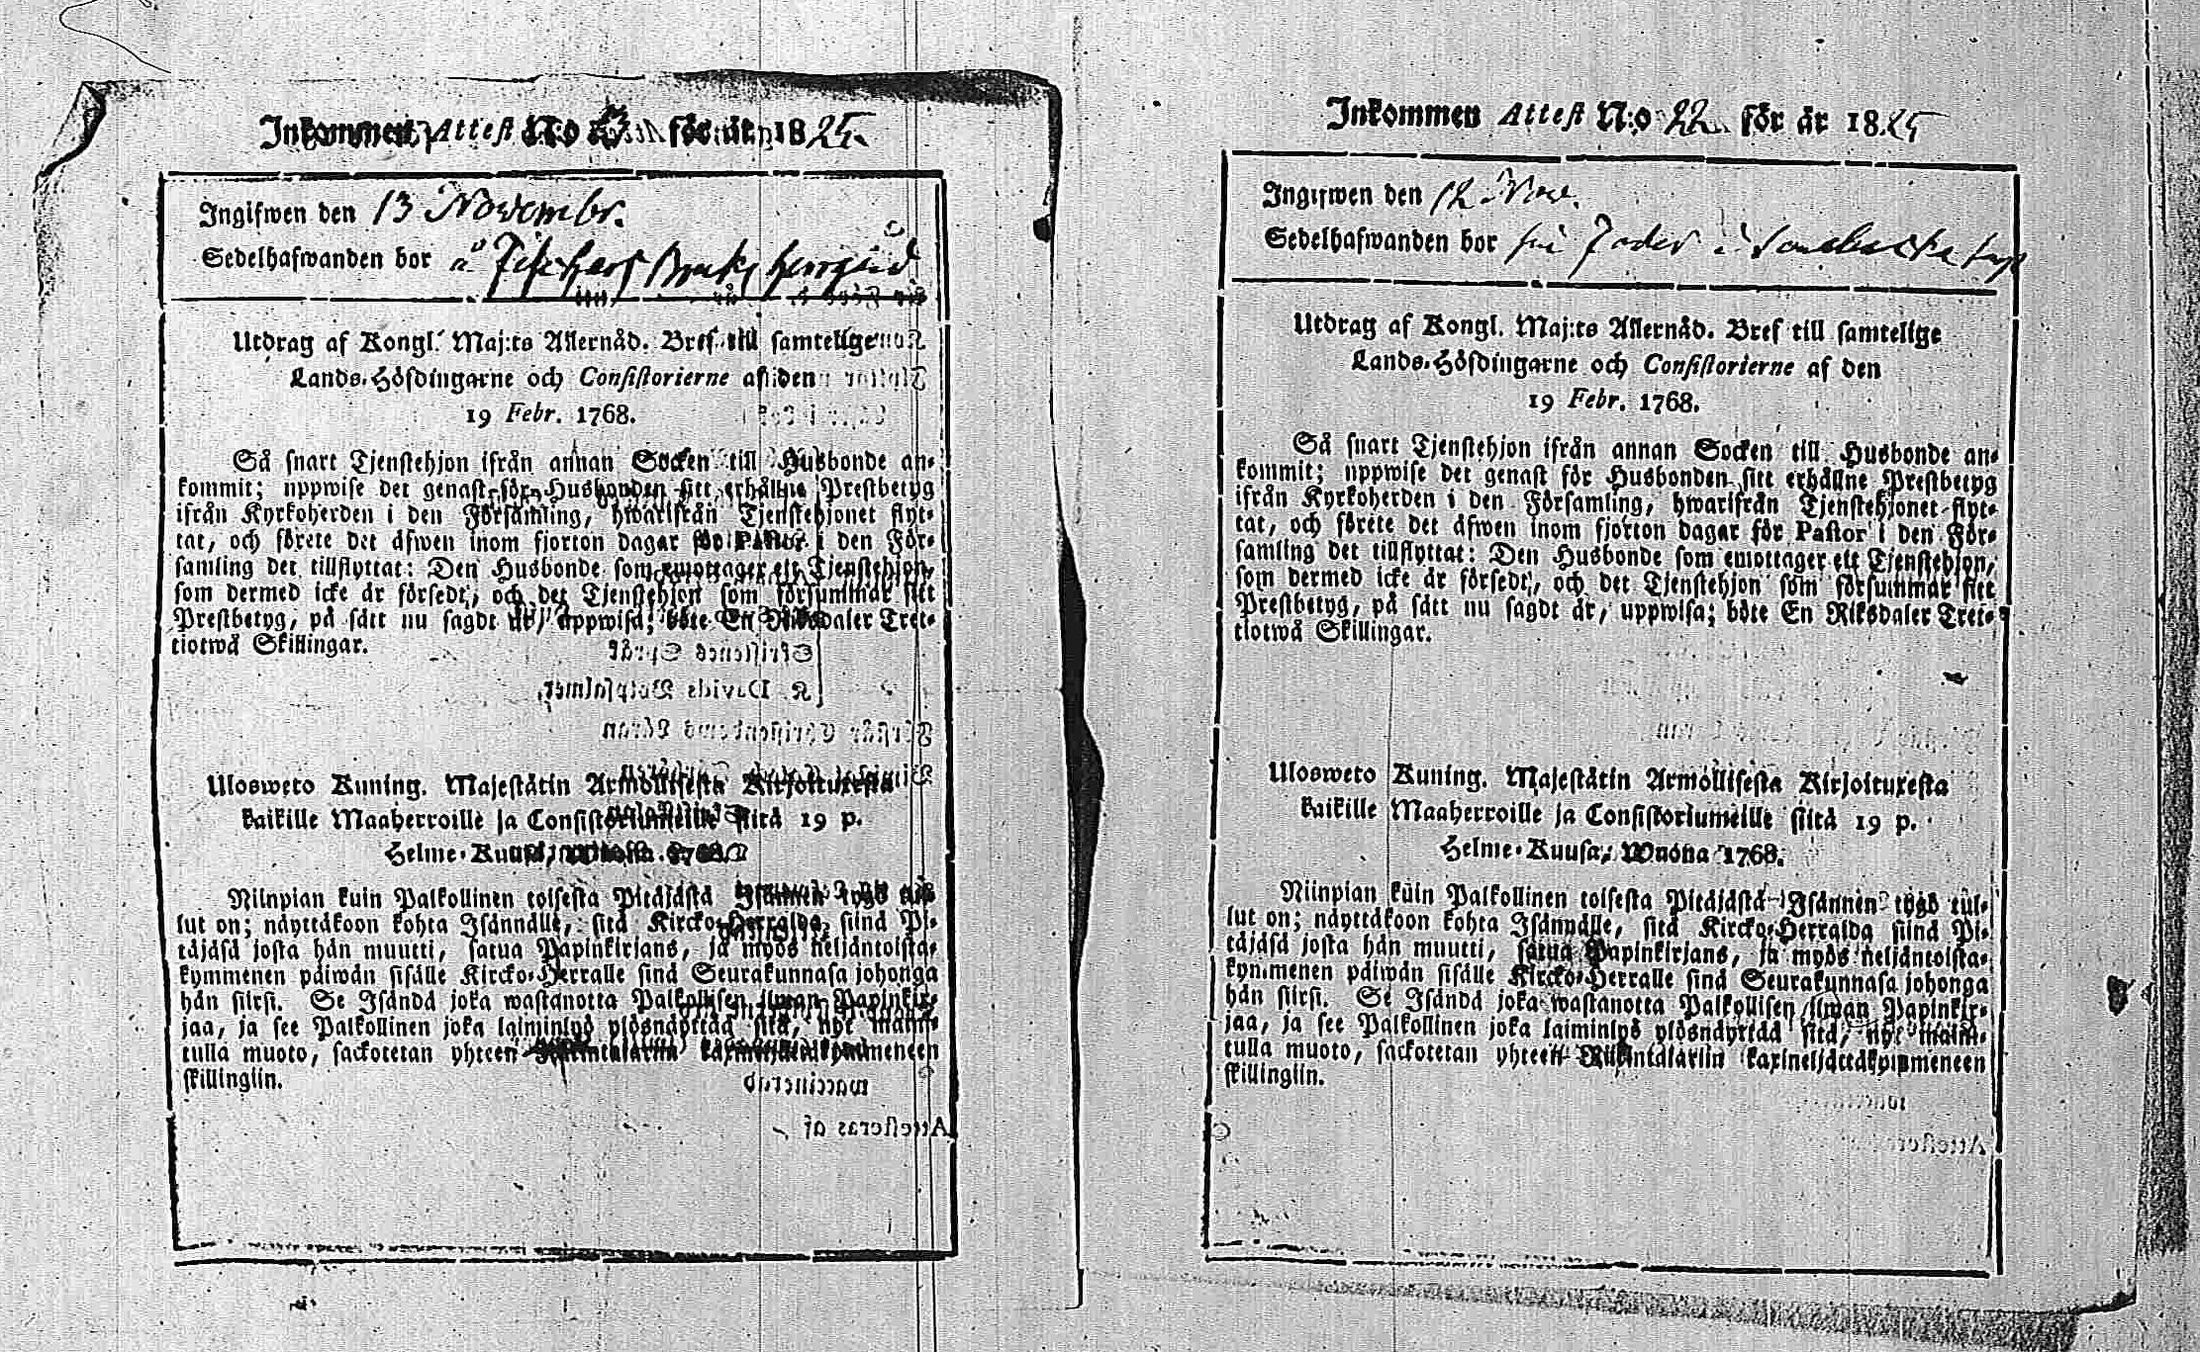 Inkommen Attest N:o 23 för år 1825.
Ingifwen den 13 Novembr.
Sedelhafwanden bor å Fiskars Bruks herrgård
Utdrag af Kongl. Maj:ts Allernåd. Bref till samtelige
Lands-Höfdingarne och Consistorierne af den
19 Febr. 1768.
Så snart Tjenstehjon ifrån annan Socken till Husbonde an-
kommit; uppwise det genast för Husbonden sitt erhållne Prestbetyg
ifrån Kyrkoherden i den Församling, hwarifrån Tjenstehjonet flyt-
tat, och förete det äfwen inom fjorton dagar för Pastor i den För-
samling det tillflyttat: Den Husbonde som emottager ett Tjenstehjon,
som dermed icke är försedt, och det Tjenstehjon som försummar sitt
Prestbetyg, på sätt nu sagdt är, uppwisa; böte En Riksdaler Tret-
tiotwå Skillingar.
Ulosweto Kuning. Majestätin Armollisesta Kirjoituxesta
kaikille Maaherroille ja Consistoriumeille siitä 19 p.
Helme-Kuusa, Wuonna 1768.
Niinpian kuin Palkollinen toisesta Pitäjästä Isännen tygö tul-
lut on; näyttäkoon kohta Isännälle, sitä Kircko-Herralda siinä Pi-
täjäsä josta hän muutti, saatua Papinkirjans, ja myös neljäntoista-
kymmenen päiwän sisälle Kircko-Herralle sinä Seurakunnasa johonga
hän siirsi. Se Isändä joka wastanotta Palkollisen ilman Papinkir-
jaa, ja see Palkollinen joka laiminlyö ylösnäyttää sitä, nyt mainit-
tulla muoto, sackotetan yhteen Riikintalariin kaxineljättäkymmeneen
skillingiin.
Inkommen Attest N:o 22 för år 1825
Ingifwen den 12 Nov.
Sedelhafwanden bor
Utdrag af Kongl. Maj:ts Allernåd. Bref till samtelige
Lands-Höfdingarne och Consistorierne af den
19 Febr. 1768.
Så snart Tjenstehjon ifrån annan Socken till Husbonde an-
kommit; uppwise det genast för Husbonden sitt erhållne Prestbetyg
ifrån Kyrkoherden i den Församling, hwarifrån Tjenstehjonet flyt-
tat, och förete det äfwen inom fjorton dagar för Pastor i den För-
samling det tillflyttat: Den Husbonde som emottager ett Tjenstehjon,
som dermed icke är försedt, och det Tjenstehjon som försummar sitt
Prestbetyg, på sätt nu sagdt är, uppwisa; böte En Riksdaler Tret-
tiotwå Skillingar.
Ulosweto Kuning. Majestätin Armollisesta Kirjoituxesta
kaikille Maaherroille ja Consistoriumeille siitä 19 p.
Helme-Kuusa, Wuonna 1768.
Niinpian kuin Palkollinen toisesta Pitäjästä Isännen tygö tul-
lut on; näyttäkoon kohta Isännälle, sitä Kircko-Herralda siinä Pi-
täjäsä josta hän muutti, saatua Papinkirjans, ja myös neljäntoista-
kymmenen päiwän sisälle Kircko-Herralle sinä Seurakunnasa johonga
hän siirsi. Se Isändä joka wastanotta Palkollisen ilman Papinkir-
jaa, ja see Palkollinen joka laiminlyö ylösnäyttää sitä, nyt mainit-
tulla muoto, sackotetan yhteen Riikintalariin kaxineljättäkymmeneen
skillingiin.